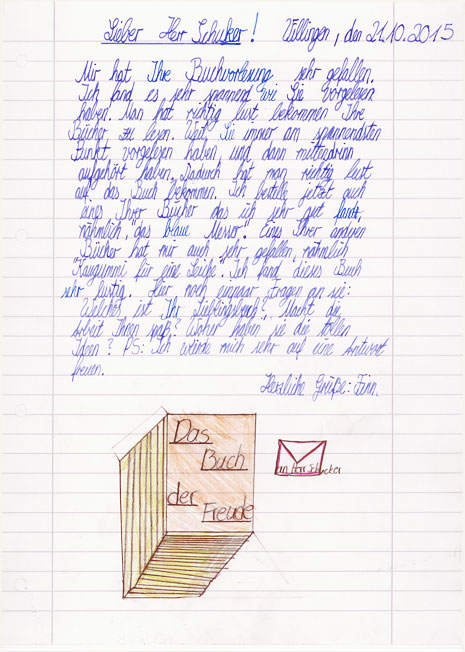 Lieber Herr Schuker! Villingen, den 21.10.2015
Mir hat Ihre Buchvorlesung sehr gefallen.
Ich fand es sehr spannend wie Sie vorgelesen
haben. Man hat richtig lust bekommen Ihre
Bücher zu lesen. Weil Sie immer am spannendsten
Punkt vorgelesen haben und dann mittendrinn
aufgehört haben. Dadurch hat man richtig lust
auf das Buch bekommen. Ich bestelle jetzt auch
eines Ihrer Bücher das ich sehr gut fand,
nähmlich "das blaue Messer". Eins Ihrer anderen
Bücher hat mir auch sehr gefallen, nähmlich
"Kaugummi für eine Leiche". Ich fand dieses Buch
sehr lustig. Hür noch einpaar Fragen an sie:
Welches ist Ihr Lieblingsbuch? Macht die
Arbeit Ihnen spaß? Woher haben sie die tollen
Ideen? PS: Ich würde mich sehr auf eine Antwort
freuen.
Herzliche Grüße: Finn.
Das
Buch
der
Freude
an Herr Schucker